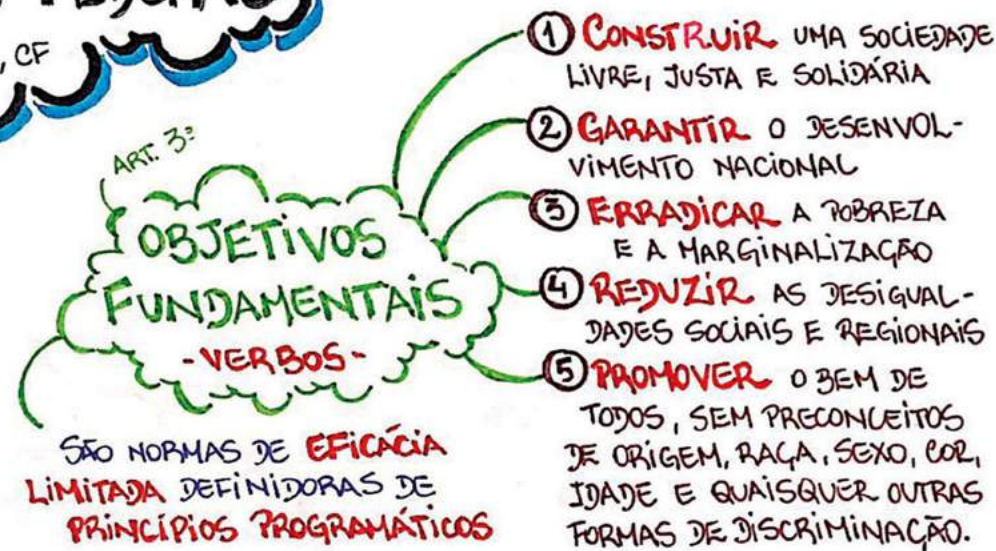 , CF
ART. 3º
OBJETIVOS
FUNDAMENTAIS
- VERBOS -
SÃO NORMAS DE EFICÁCIA
LIMITADA DEFINIDORAS DE
PRINCÍPIOS PROGRAMÁTICOS
① CONSTRUIR UMA SOCIEDADE
LIVRE, JUSTA E SOLIDÁRIA
② GARANTIR O DESENVOL-
VIMENTO NACIONAL
③ ERRADICAR A POBREZA
E A MARGINALIZAÇÃO
④ REDUZIR AS DESIGUAL-
DADES SOCIAIS E REGIONAIS
⑤ PROMOVER O BEM DE
TODOS, SEM PRECONCEITOS
DE ORIGEM, RAÇA, SEXO, COR,
IDADE E QUAISQUER OUTRAS
FORMAS DE DISCRIMINAÇÃO.